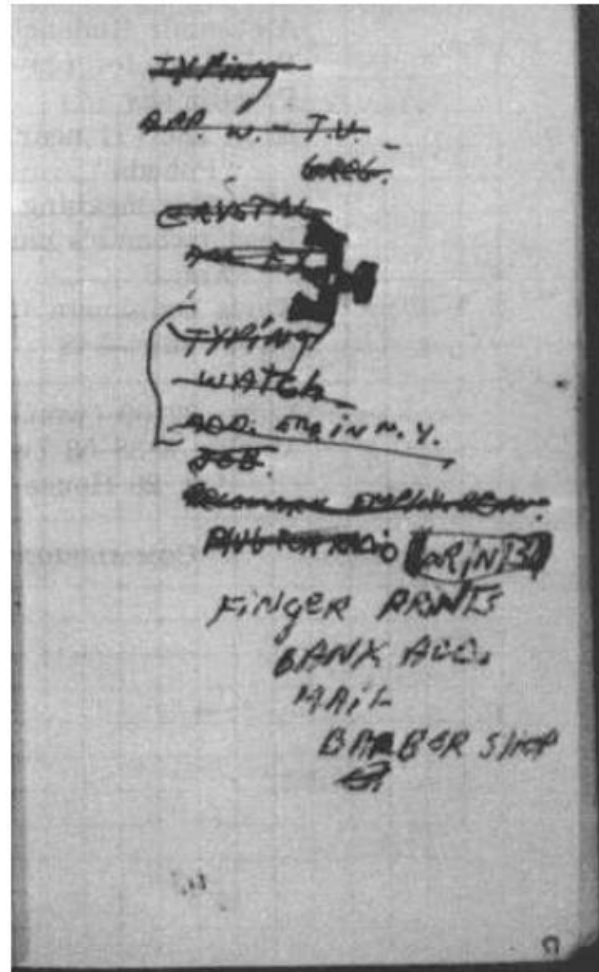 TYPING
APP. W. - T.V.
GREG.
CRYSTAL
TYPING
WATCH
ADD. EMB IN N.Y.
JOB.
PLUG FOR RADIO [PRINTS]
FINGER PRINTS
BANK ACC.
MAIL
BARBER SHOP